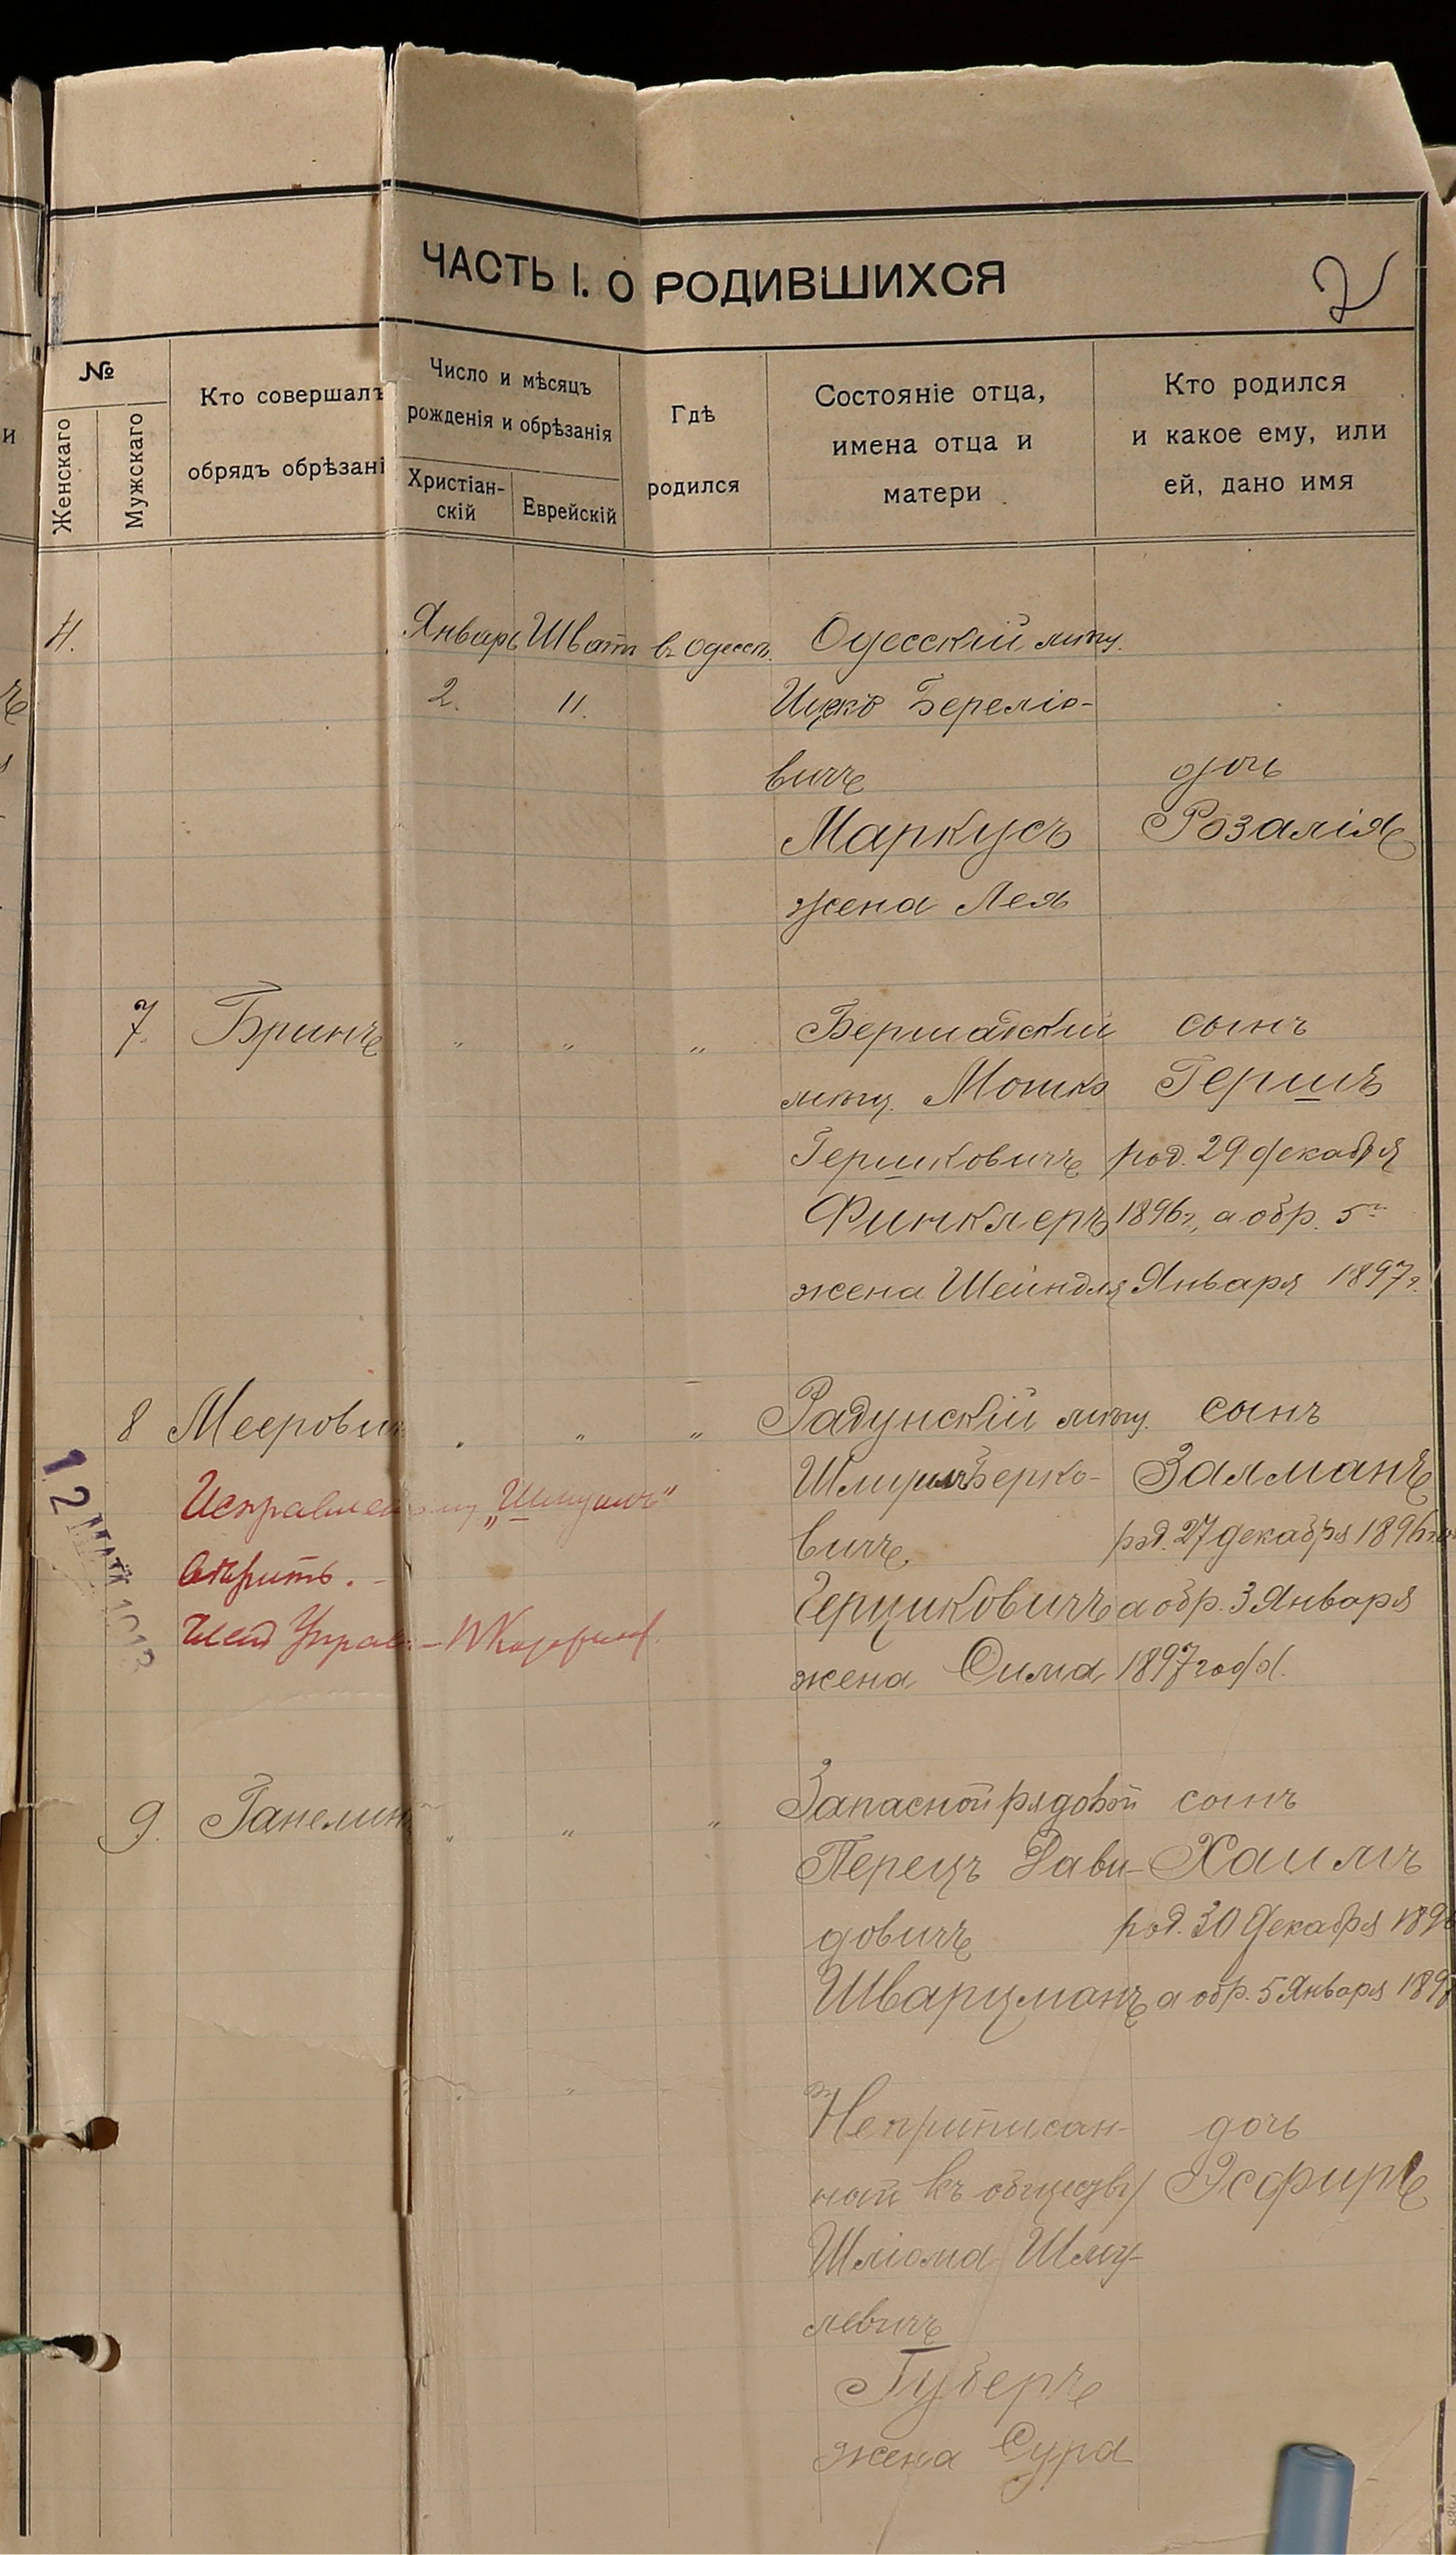 ЧАСТЬ I. О РОДИВШИХСЯ
2
№
Женскаго
Мужскаго
Кто совершалъ
обрядъ обрѣзані
Число и мѣсяцъ
рожденія и обрѣзанія
Христіан-
скій
Еврейскій
Гдѣ
родился
Состояніе отца,
имена отца и
матери
Кто родился
и какое ему, или
ей, дано имя
4.
Январь Шватъ въ Одессѣ
2. 11.
Одесскій мѣщ.
Ицко Береліо-
вичъ
Маркусъ
жена Лея
дочь
Розалія
7. Бринъ " " "
Бершадскій
мѣщ. Мошко
Гершковичъ
Финклеръ
жена Шейндля
сынъ
Гершъ
род. 29 декабря
1896 г., а обр. 5го
Января 1897 г.
8 Мееровичъ " " "
Радунскій мѣщ.
Шмуилъ Берко-
вичъ
Гершковичъ
жена Сима
сынъ
Залманъ
род. 27 декабря 1896
а обр. 3 Января
1897 года.
"Шмуилъ"
вѣрить.
Член Управ.
12 МАЯ 1913
9. Ганелинъ " " "
Запасной рядовой
Перецъ Дави-
довичъ
Шварцманъ
сынъ
Хаимъ
род. 30 Декабря 189
а обр. 5 Января 189
Неприписан-
ный къ обществу
Шліома Шму-
левичъ
Губеръ
жена Сура
дочь
Эсфирь